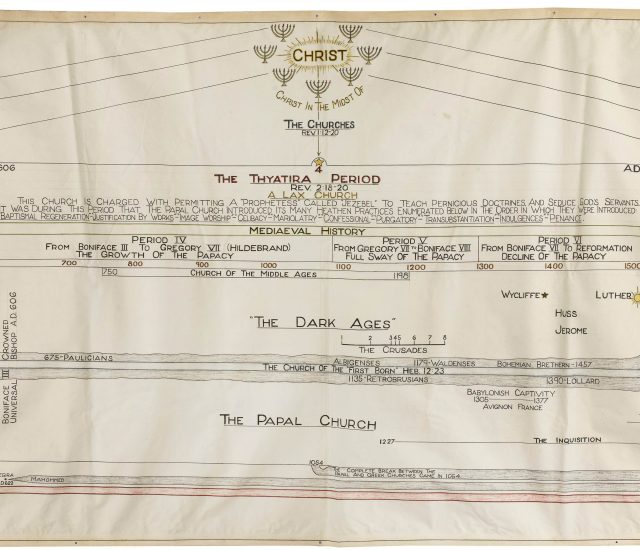 CHRIST
CHRIST IN THE MIDST OF
THE CHURCHES
REV. 1:12-20
606
4
AD
THE THYATIRA PERIOD
REV. 2:18-20
A LAX CHURCH
THIS CHURCH IS CHARGED WITH PERMITTING A "PROPHETESS" CALLED "JEZEBEL" TO TEACH PERNICIOUS DOCTRINES, AND SEDUCE GOD'S SERVANTS.
IT WAS DURING THIS PERIOD THAT THE PAPAL CHURCH INTRODUCED ITS MANY HEATHEN PRACTICES ENUMERATED BELOW IN THE ORDER IN WHICH THEY WERE INTRODUCED
BAPTISMAL REGENERATION-JUSTIFICATION BY WORKS-IMAGE WORSHIP-CELIBACY-MARIOLATRY-CONFESSIONAL-PURGATORY-TRANSUBSTANTIATION-INDULGENCES-PENANCE.
MEDIAEVAL HISTORY
PERIOD IV
FROM BONIFACE III TO GREGORY VII (HILDEBRAND)
THE GROWTH OF THE PAPACY
PERIOD V
FROM GREGORY VII TO BONIFACE VIII
FULL SWAY OF THE PAPACY
PERIOD VI
FROM BONIFACE VII TO REFORMATION
DECLINE OF THE PAPACY
700 800 900 1000 1100 1200 1300 1400 1500
750 CHURCH OF THE MIDDLE AGES 1198
WYCLIFFE
LUTHER
HUSS
JEROME
"THE DARK AGES"
2 3 4 5 6 7 8
THE CRUSADES
CROWNED
BISHOP A.D. 606
675-PAULICIANS
ALBIGENSES
1179-WALDENSES
BOHEMIAN BRETHERN-1457
THE CHURCH OF THE "FIRST BORN" HEB. 12:23
1135-RETROBRUSIANS
1390-LOLLARD
BONIFACE III
UNIVERSAL
BABYLONISH CAPTIVITY
1305 1377
AVIGNON FRANCE
THE PAPAL CHURCH
1227
THE INQUISITION
1054
THE COMPLETE BREAK BETWEEN THE
AND GREEK CHURCHES CAME IN 1054.
MAHOMMED